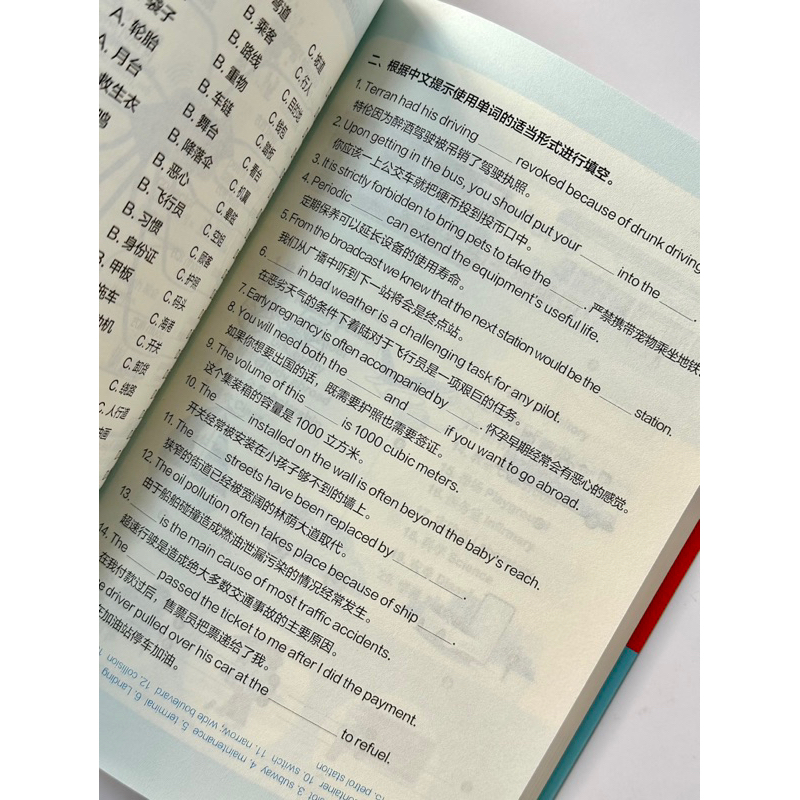 弯道
A. 轮胎 B. 乘客
A. 月台 B. 路线 C. 行人
救生衣 B. 重物 C. 目的地
B. 车链 C. 钱包
B. 舞台 C. 踏板
B. 降落伞 C. 看台
B. 恶心 C. 机翼
B. 飞行员
B. 习惯 C. 空姐
B. 身份证 C. 旅客
B. 甲板 C. 护照
拖车 C. 码头
C. 开关
C. 卸货
C. 人行道
二、根据中文提示使用单词的适当形式进行填空。
1. Terran had his driving ____ revoked because of drunk driving
特伦因为醉酒驾驶被吊销了驾驶执照。
2. Upon getting in the bus, you should put your ____ into the ____.
你应该一上公交车就把硬币投到投币口中。
3. It is strictly forbidden to bring pets to take the ____. 严禁携带宠物乘坐地铁
4. Periodic ____ can extend the equipment's useful life.
定期保养可以延长设备的使用寿命。
5. From the broadcast we knew that the next station would be the ____ station.
我们从广播中听到下一站将会是终点站。
6. ____ in bad weather is a challenging task for any pilot.
在恶劣天气的条件下着陆对于飞行员是一项艰巨的任务。
7. Early pregnancy is often accompanied by ____. 怀孕早期经常会有恶心的感觉。
8. You will need both the ____ and ____ if you want to go abroad.
如果你想要出国的话，既需要护照也需要签证。
9. The volume of this ____ is 1000 cubic meters.
这个集装箱的容量是 1000 立方米。
10. The ____ installed on the wall is often beyond the baby's reach.
开关经常被安装在小孩子够不到的墙上。
11. The ____ streets have been replaced by ____ ____.
狭窄的街道已经被宽阔的林荫大道取代。
12. The oil pollution often takes place because of ship ____.
由于船舶碰撞造成燃油泄漏污染的情况经常发生。
13. ____ is the main cause of most traffic accidents.
超速行驶是造成绝大多数交通事故的主要原因。
14. The ____ passed the ticket to me after I did the payment.
在我付款过后，售票员把票递给了我。
e driver pulled over his car at the ____ ____ to refuel.
在加油站停车加油。
lot 3. subway 4. maintenance 5. terminal 6. Landing
ontainer 10. switch 11. narrow; wide boulevard 12. collision 1
15. petrol station